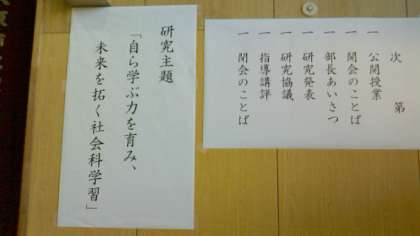 次第
一 公開授業
一 開会のことば
一 部長あいさつ
一 研究発表
一 研究協議
一 指導講評
一 閉会のことば
研究主題
「自ら学ぶ力を育み、
未来を拓く社会科学習」